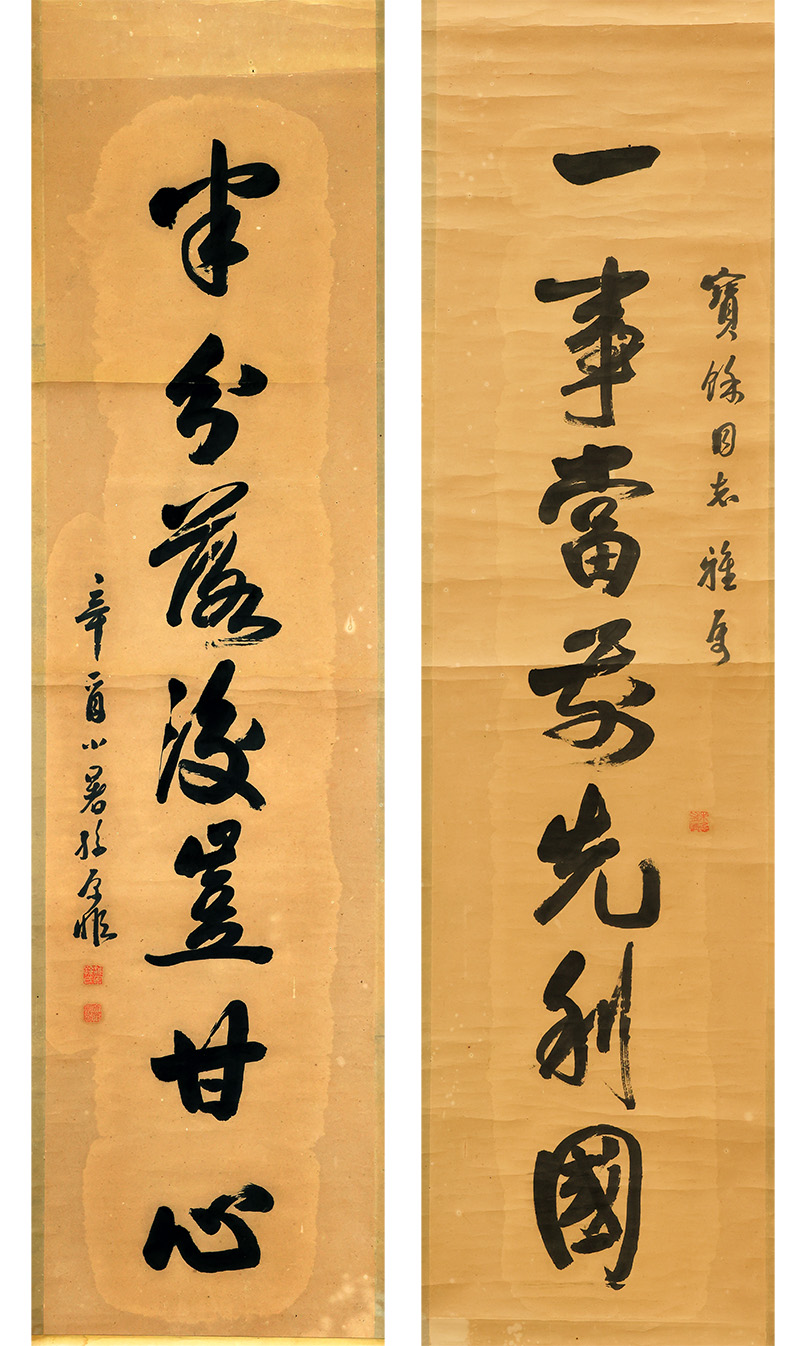 寶餘同志雅屬
一事當前先利國
半分落後豈甘心
辛酉小暑